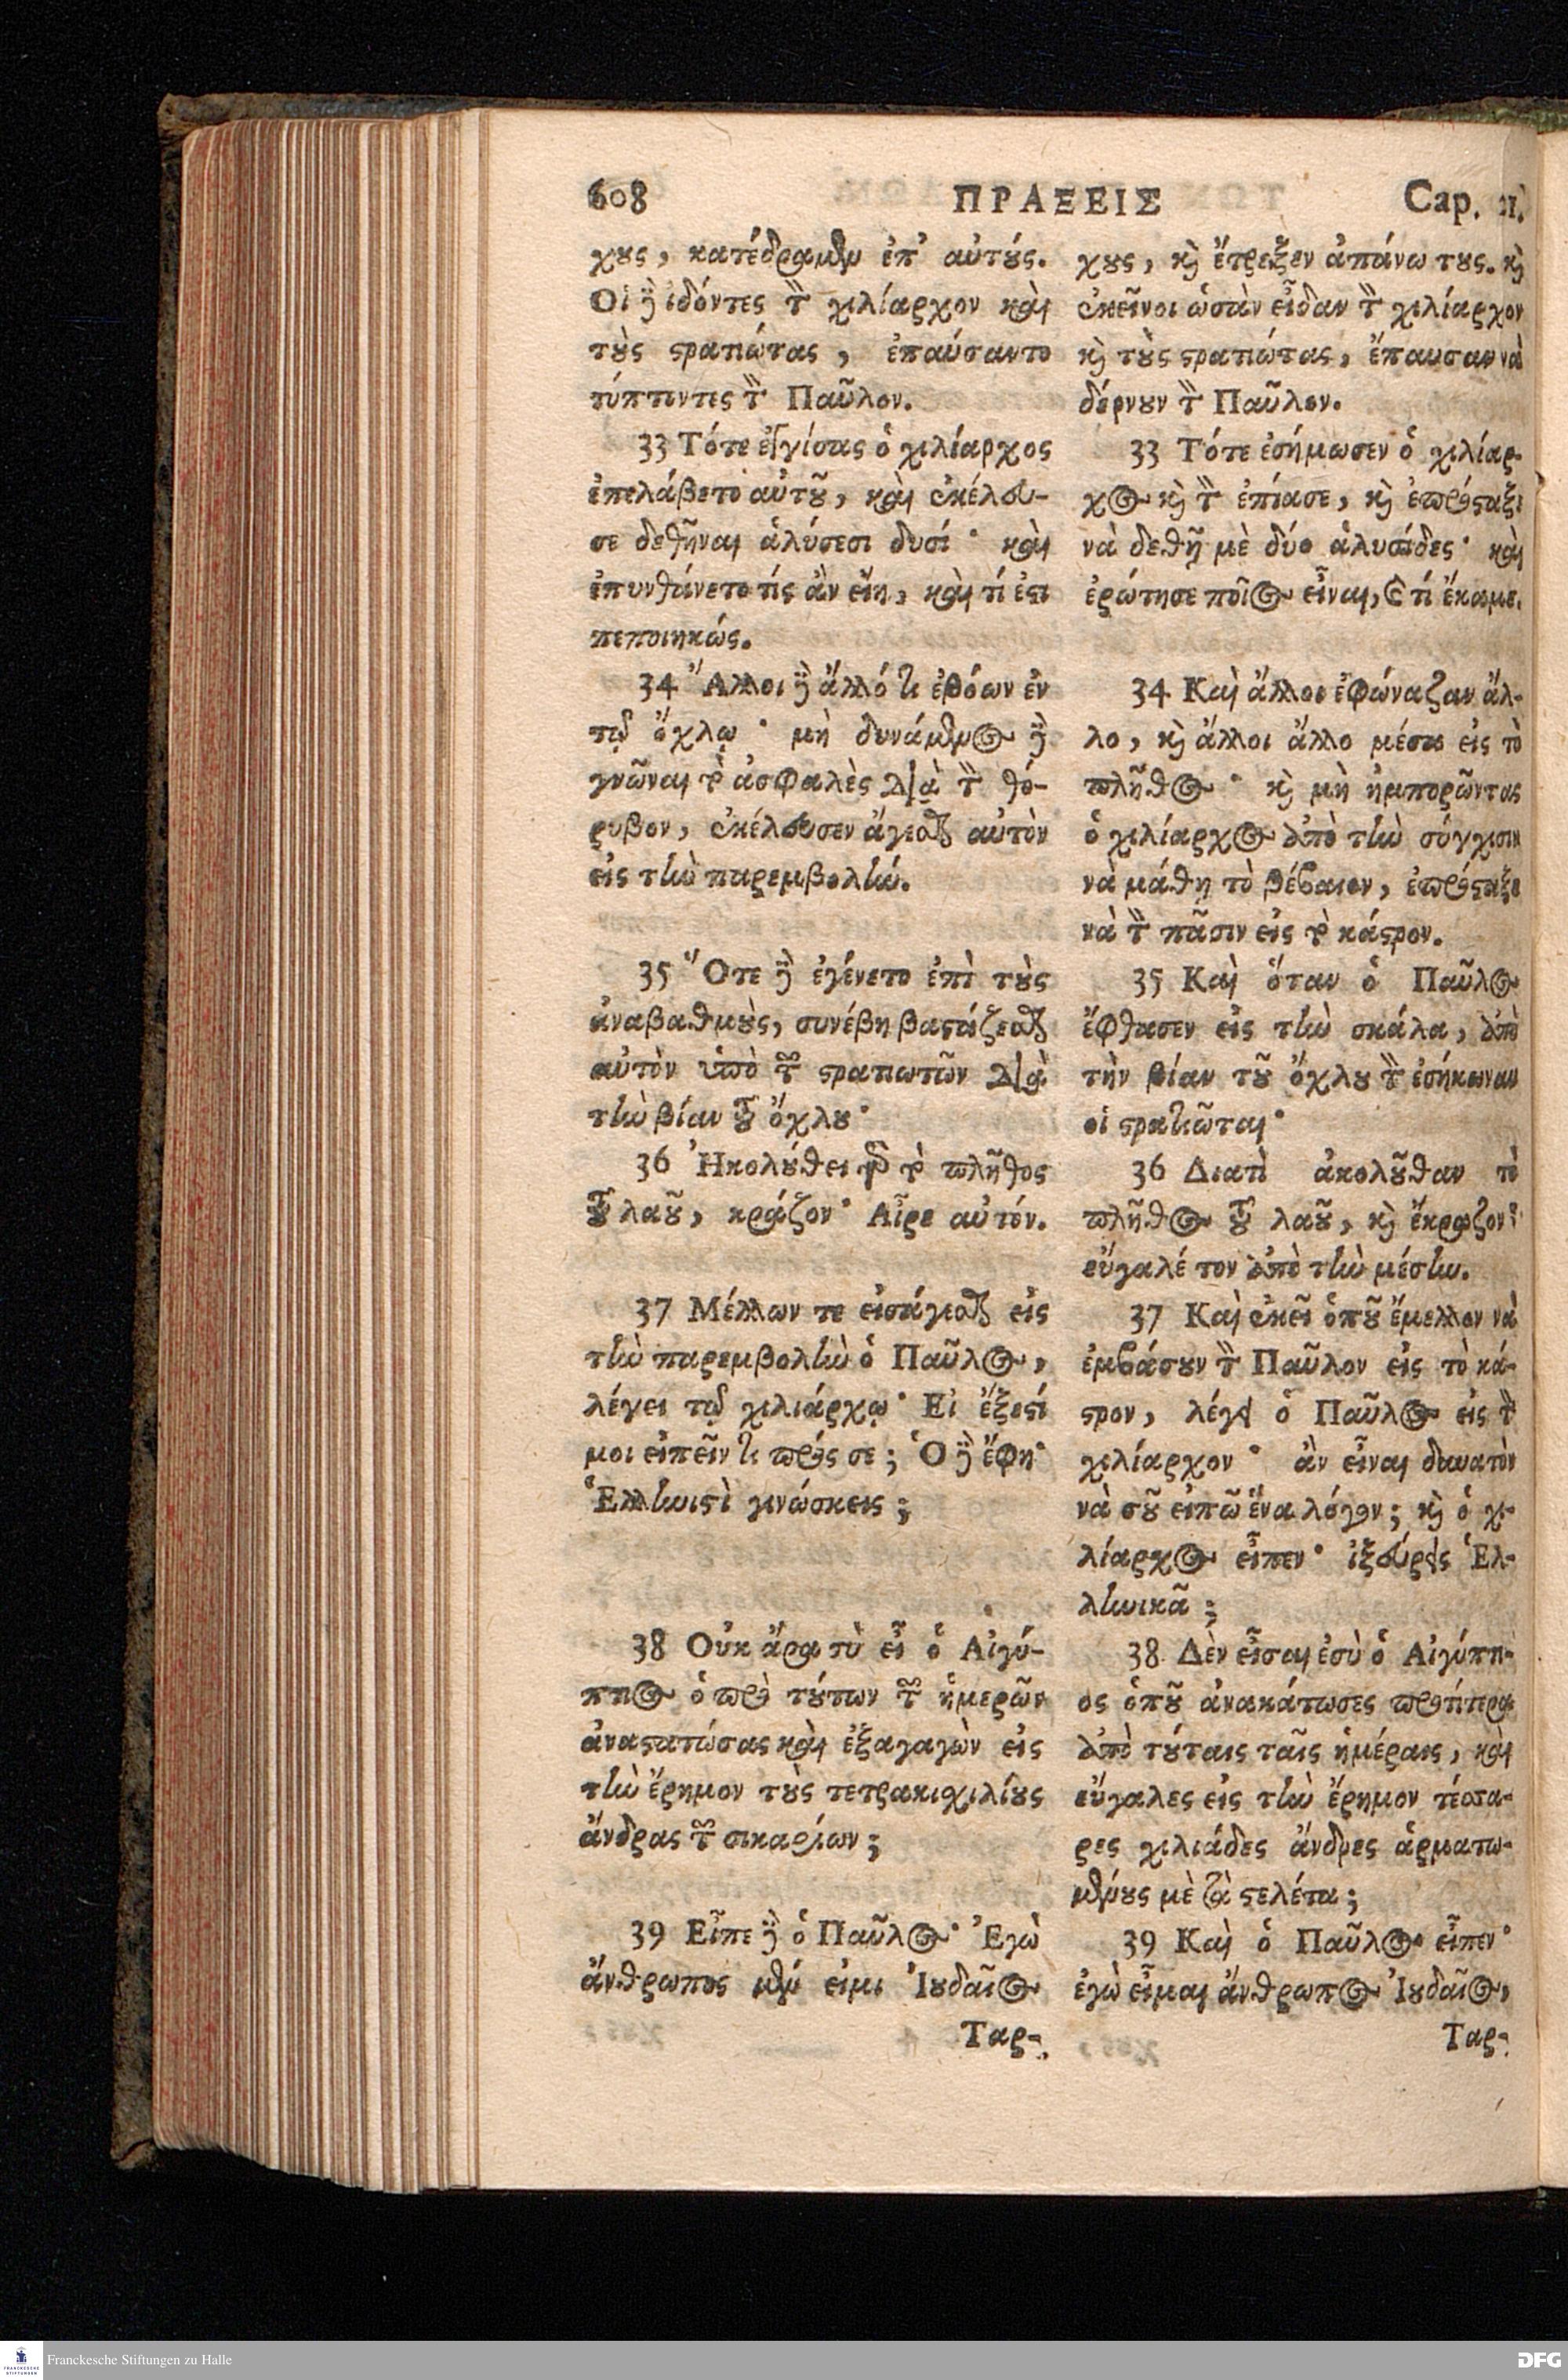 608 ΠΡΑΞΕΙΣ Cap. 21.
χους, κατέδραμεν ἐπ' αὐτούς.
Οἱ δὲ ἰδόντες τὸν χιλίαρχον καὶ
τοὺς στρατιώτας, ἐπαύσαντο
τύπτοντες τὸν Παῦλον.
33 Τότε ἐγγίσας ὁ χιλίαρχος
ἐπελάβετο αὐτοῦ, καὶ ἐκέλευ-
σε δεθῆναι ἁλύσεσι δυσί· καὶ
ἐπυνθάνετο τίς ἂν εἴη, καὶ τί ἐστι
πεποιηκώς.
34 Ἄλλοι δὲ ἄλλό τι ἐβόων ἐν
τῷ ὄχλῳ· μὴ δυνάμενος δὲ
γνῶναι τὸ ἀσφαλὲς διὰ τὸν θό-
ρυβον, ἐκέλευσεν ἄγεσθαι αὐτὸν
εἰς τὴν παρεμβολήν.
35 Ὅτε δὲ ἐγένετο ἐπὶ τοὺς
ἀναβαθμοὺς, συνέβη βαστάζεσθαι
αὐτὸν ὑπὸ τῶν στρατιωτῶν διὰ
τὴν βίαν τοῦ ὄχλου·
36 Ἠκολούθει γὰρ τὸ πλῆθος
τοῦ λαοῦ, κράζον· Αἶρε αὐτόν.
37 Μέλλων τε εἰσάγεσθαι εἰς
τὴν παρεμβολὴν ὁ Παῦλος,
λέγει τῷ χιλιάρχῳ· Εἰ ἔξεστί
μοι εἰπεῖν τι πρός σε; Ὁ δὲ ἔφη·
Ἑλληνιστὶ γινώσκεις;
38 Οὐκ ἄρα σὺ εἶ ὁ Αἰγύ-
πτιος ὁ πρὸ τούτων τῶν ἡμερῶν
ἀναστατώσας καὶ ἐξαγαγὼν εἰς
τὴν ἔρημον τοὺς τετρακιχιλίους
ἄνδρας τῶν σικαρίων;
39 Εἶπε δὲ ὁ Παῦλος· Ἐγὼ
ἄνθρωπος μέν εἰμι Ἰουδαῖος
Ταρ-
χους, καὶ ἔτρεξεν ἀπάνω τους. καὶ
ἐκεῖνοι ὡσὰν εἶδαν τὸν χιλίαρχον
καὶ τοὺς στρατιώτας, ἔπαυσαν νὰ
δέρνουν τὸν Παῦλον.
33 Τότε ἐσήμωσεν ὁ χιλίαρ-
χος καὶ τὸν ἐπίασε, καὶ ἐπρόσταξε
νὰ δεθῇ μὲ δύο ἁλυσίδες· καὶ
ἐρώτησε ποῖος εἶναι, καὶ τί ἔκαμε.
34 Καὶ ἄλλοι ἐφώναζαν ἄλ-
λο, καὶ ἄλλοι ἄλλο μέσα εἰς τὸ
πλῆθος· καὶ μὴ ἠμπορῶντας
ὁ χιλίαρχος ἀπὸ τὴν σύγχισιν
νὰ μάθῃ τὸ βέβαιον, ἐπρόσταξε
νὰ τὸν πᾶσιν εἰς τὸ κάστρον.
35 Καὶ ὅταν ὁ Παῦλος
ἔφθασεν εἰς τὴν σκάλα, ἀπὸ
τὴν βίαν τοῦ ὄχλου τὸν ἐσήκωναν
οἱ στρατιῶται·
36 Διατὶ ἀκολοῦθαν τὸ
πλῆθος τοῦ λαοῦ, καὶ ἔκραζον·
εὔγαλέ τον ἀπὸ τὴν μέσην.
37 Καὶ ἐκεῖ ὁποῦ ἔμελλον νὰ
ἐμβάσουν τὸν Παῦλον εἰς τὸ κά-
στρον, λέγει ὁ Παῦλος εἰς τὸν
χιλίαρχον· ἂν εἶναι δυνατὸν
νὰ σοῦ εἰπῶ ἕνα λόγον; καὶ ὁ χι-
λίαρχος εἶπεν· ἰξεύρεις Ἑλ-
ληνικᾶ;
38 Δὲν εἶσαι ἐσὺ ὁ Αἰγύπτι-
ος ὁποῦ ἀνακάτωσες προτίτερα
ἀπὸ τούταις ταῖς ἡμέραις, καὶ
εὔγαλες εἰς τὴν ἔρημον τέσσα-
ρες χιλιάδες ἄνδρες ἁρματω-
μένους μὲ τὰ στελέτα;
39 Καὶ ὁ Παῦλος εἶπεν·
ἐγὼ εἶμαι ἄνθρωπος Ἰουδαῖος,
Ταρ-
FRANCKESCHE STIFTUNGEN
Franckesche Stiftungen zu Halle
DFG